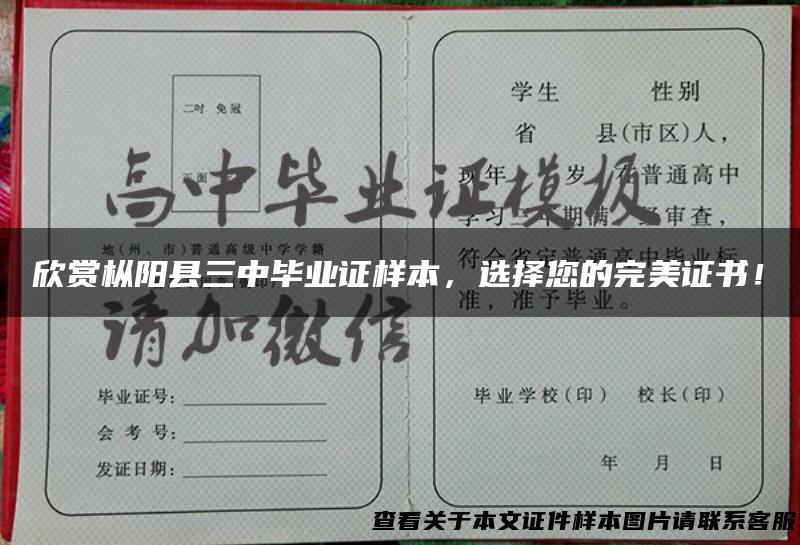 二吋 免冠
正面
地(州、市)普通高级中学学籍
毕业证号：
会 考 号：
发证日期：
学生 性别
省 县(市区)人，
现年 岁，在普通高中
学习三年期满，经审查，
符合省定普通高中毕业标
准，准予毕业。
毕业学校(印) 校长(印)
年 月 日
高中毕业证模板
请加微信
欣赏枞阳县三中毕业证样本，选择您的完美证书！
查看关于本文证件样本图片请联系客服